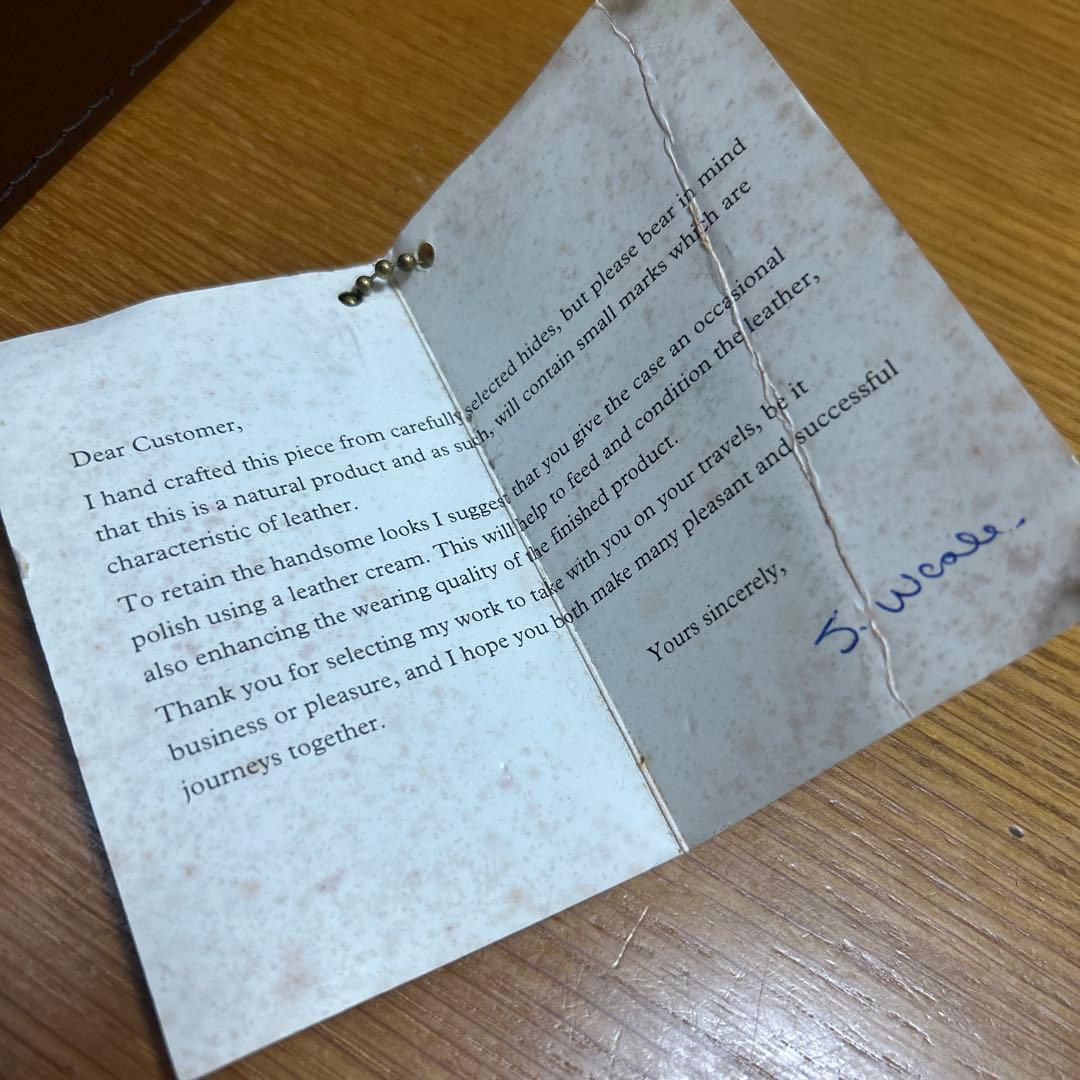 Dear Customer,
I hand crafted this piece from carefully selected hides, but please bear in mind
that this is a natural product and as such, will contain small marks which are
characteristic of leather.
To retain the handsome looks I suggest that you give the case an occasional
polish using a leather cream. This will help to feed and condition the leather,
also enhancing the wearing quality of the finished product.
Thank you for selecting my work to take with you on your travels, be it
business or pleasure, and I hope you both make many pleasant and successful
journeys together.
Yours sincerely,
S. Weale.